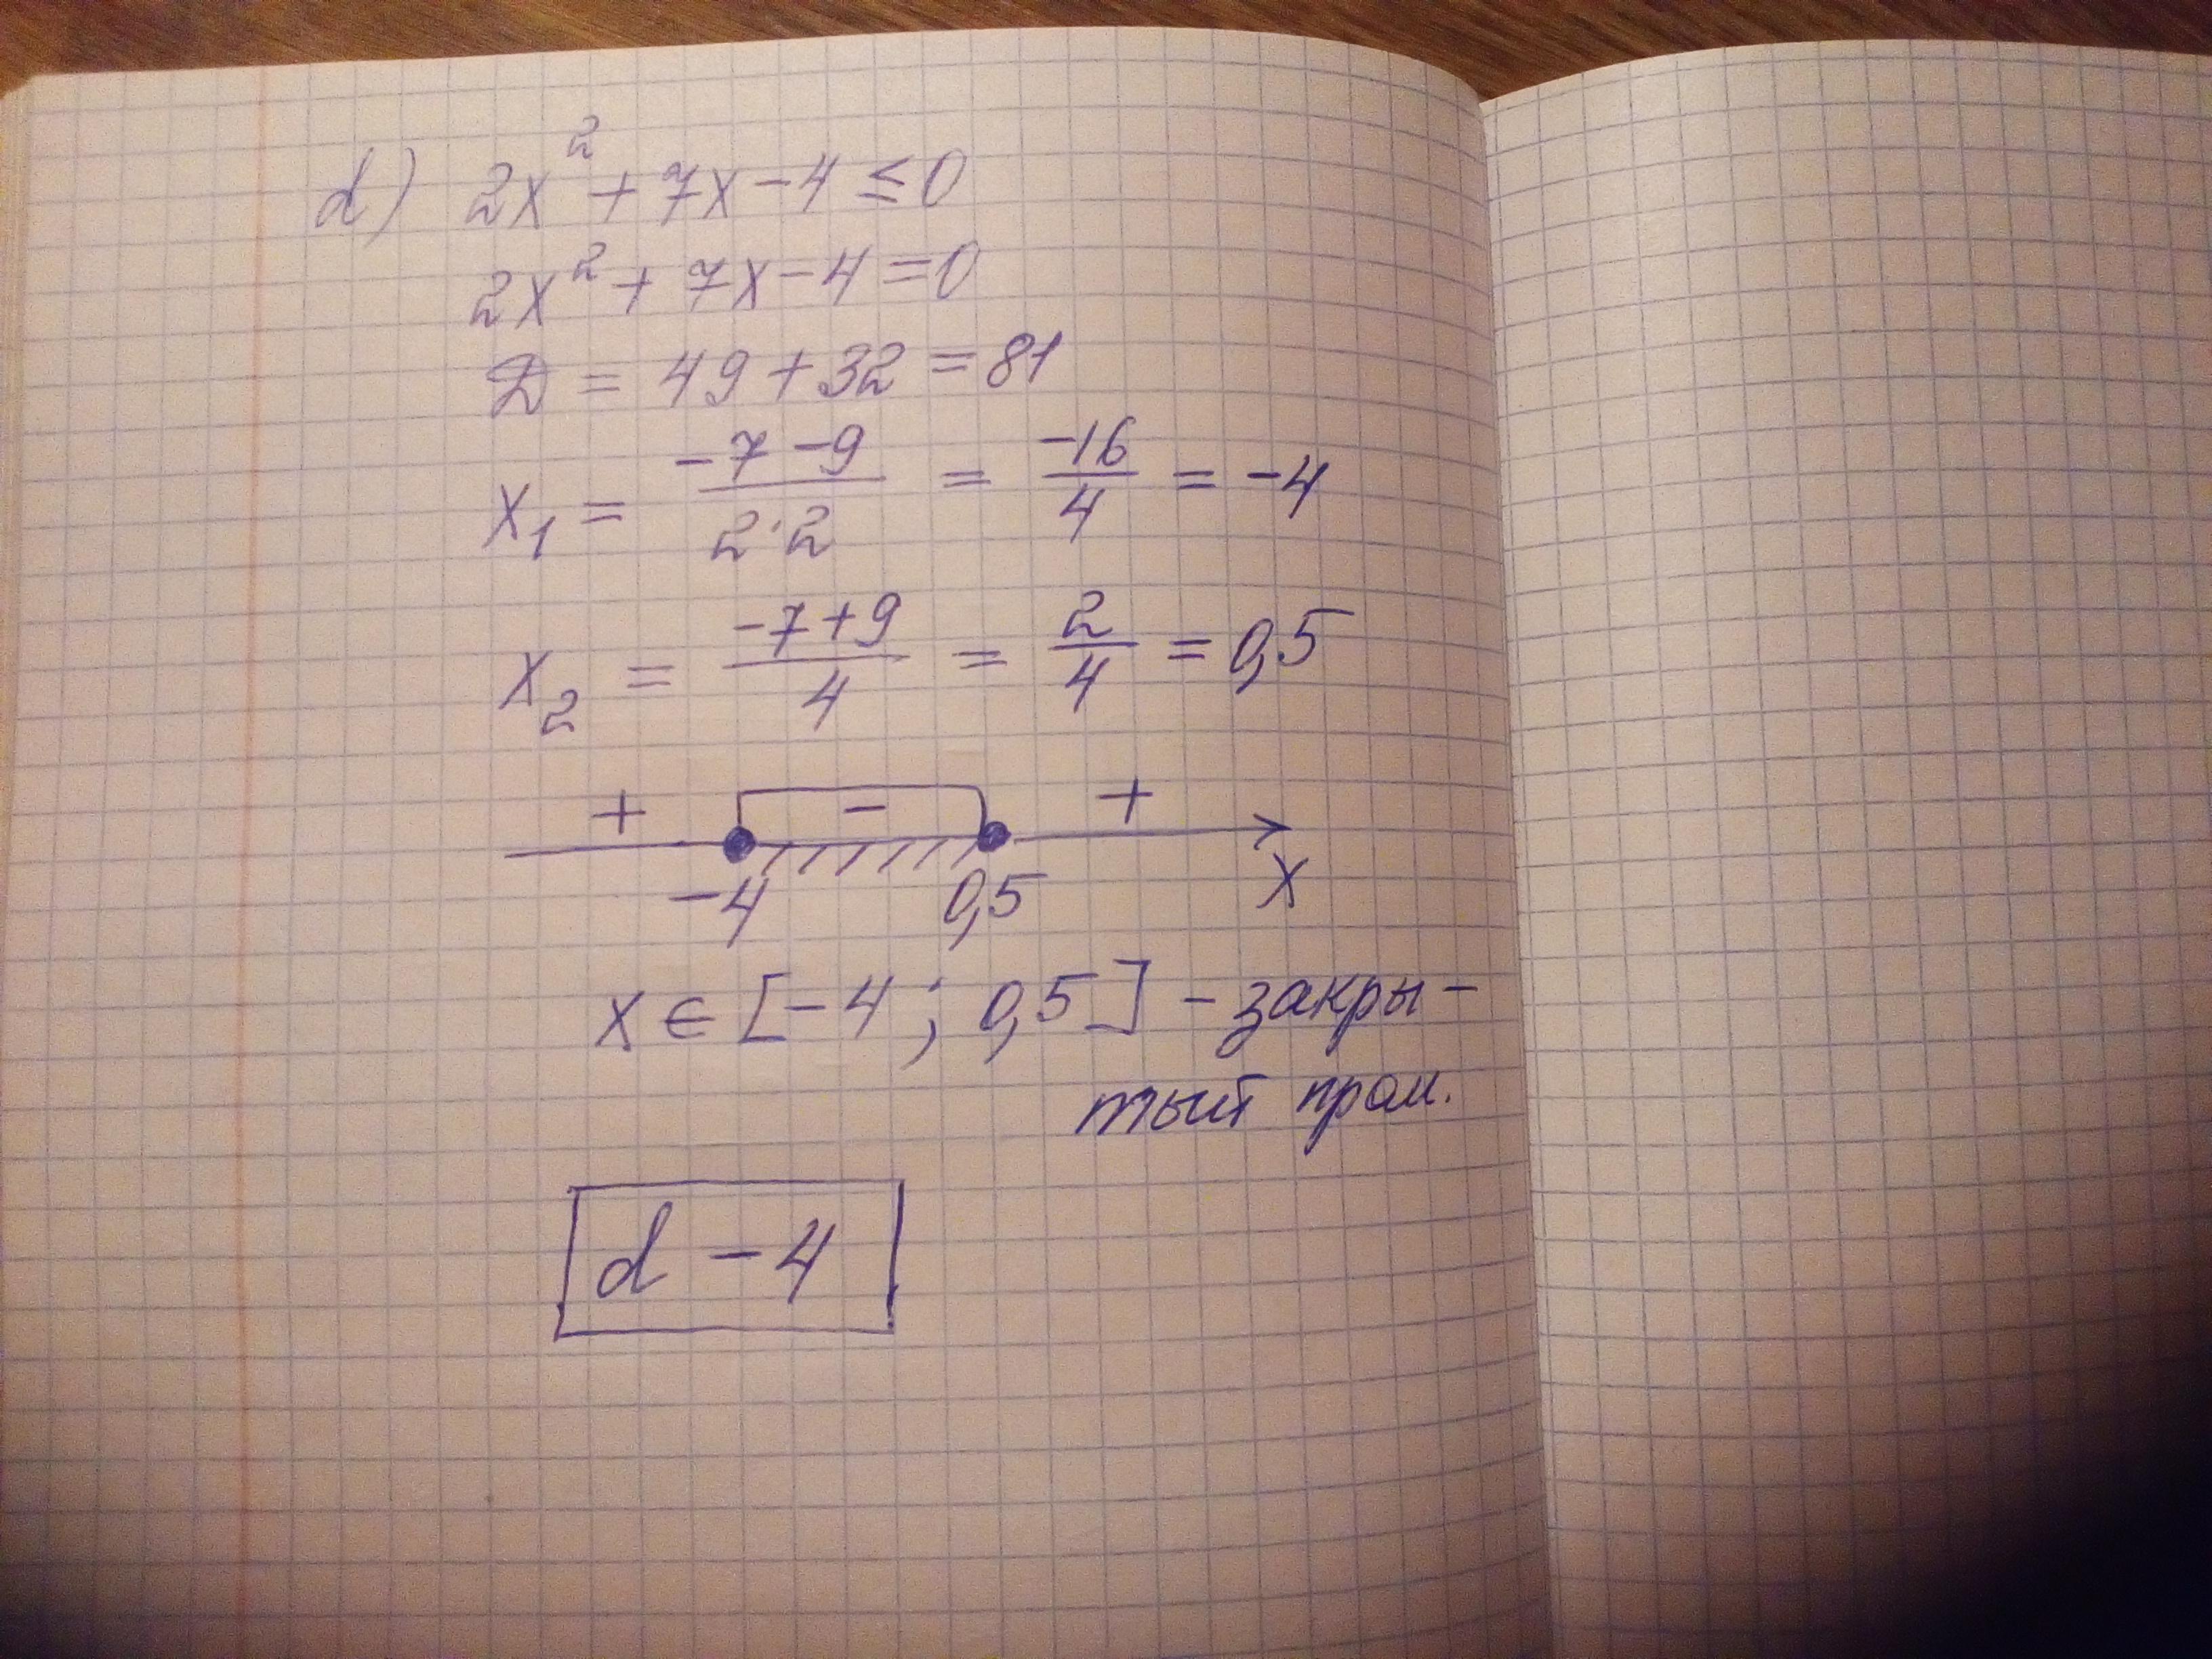 d) 2x² + 7x - 4 ≤ 0
2x² + 7x - 4 = 0
D = 49 + 32 = 81
x₁ = (-7 - 9)/(2·2) = -16/4 = -4
x₂ = (-7 + 9)/4 = 2/4 = 0,5
+ - +
-4 0,5 x
x ∈ [-4; 0,5] - закры-
тый пром.
d - 4